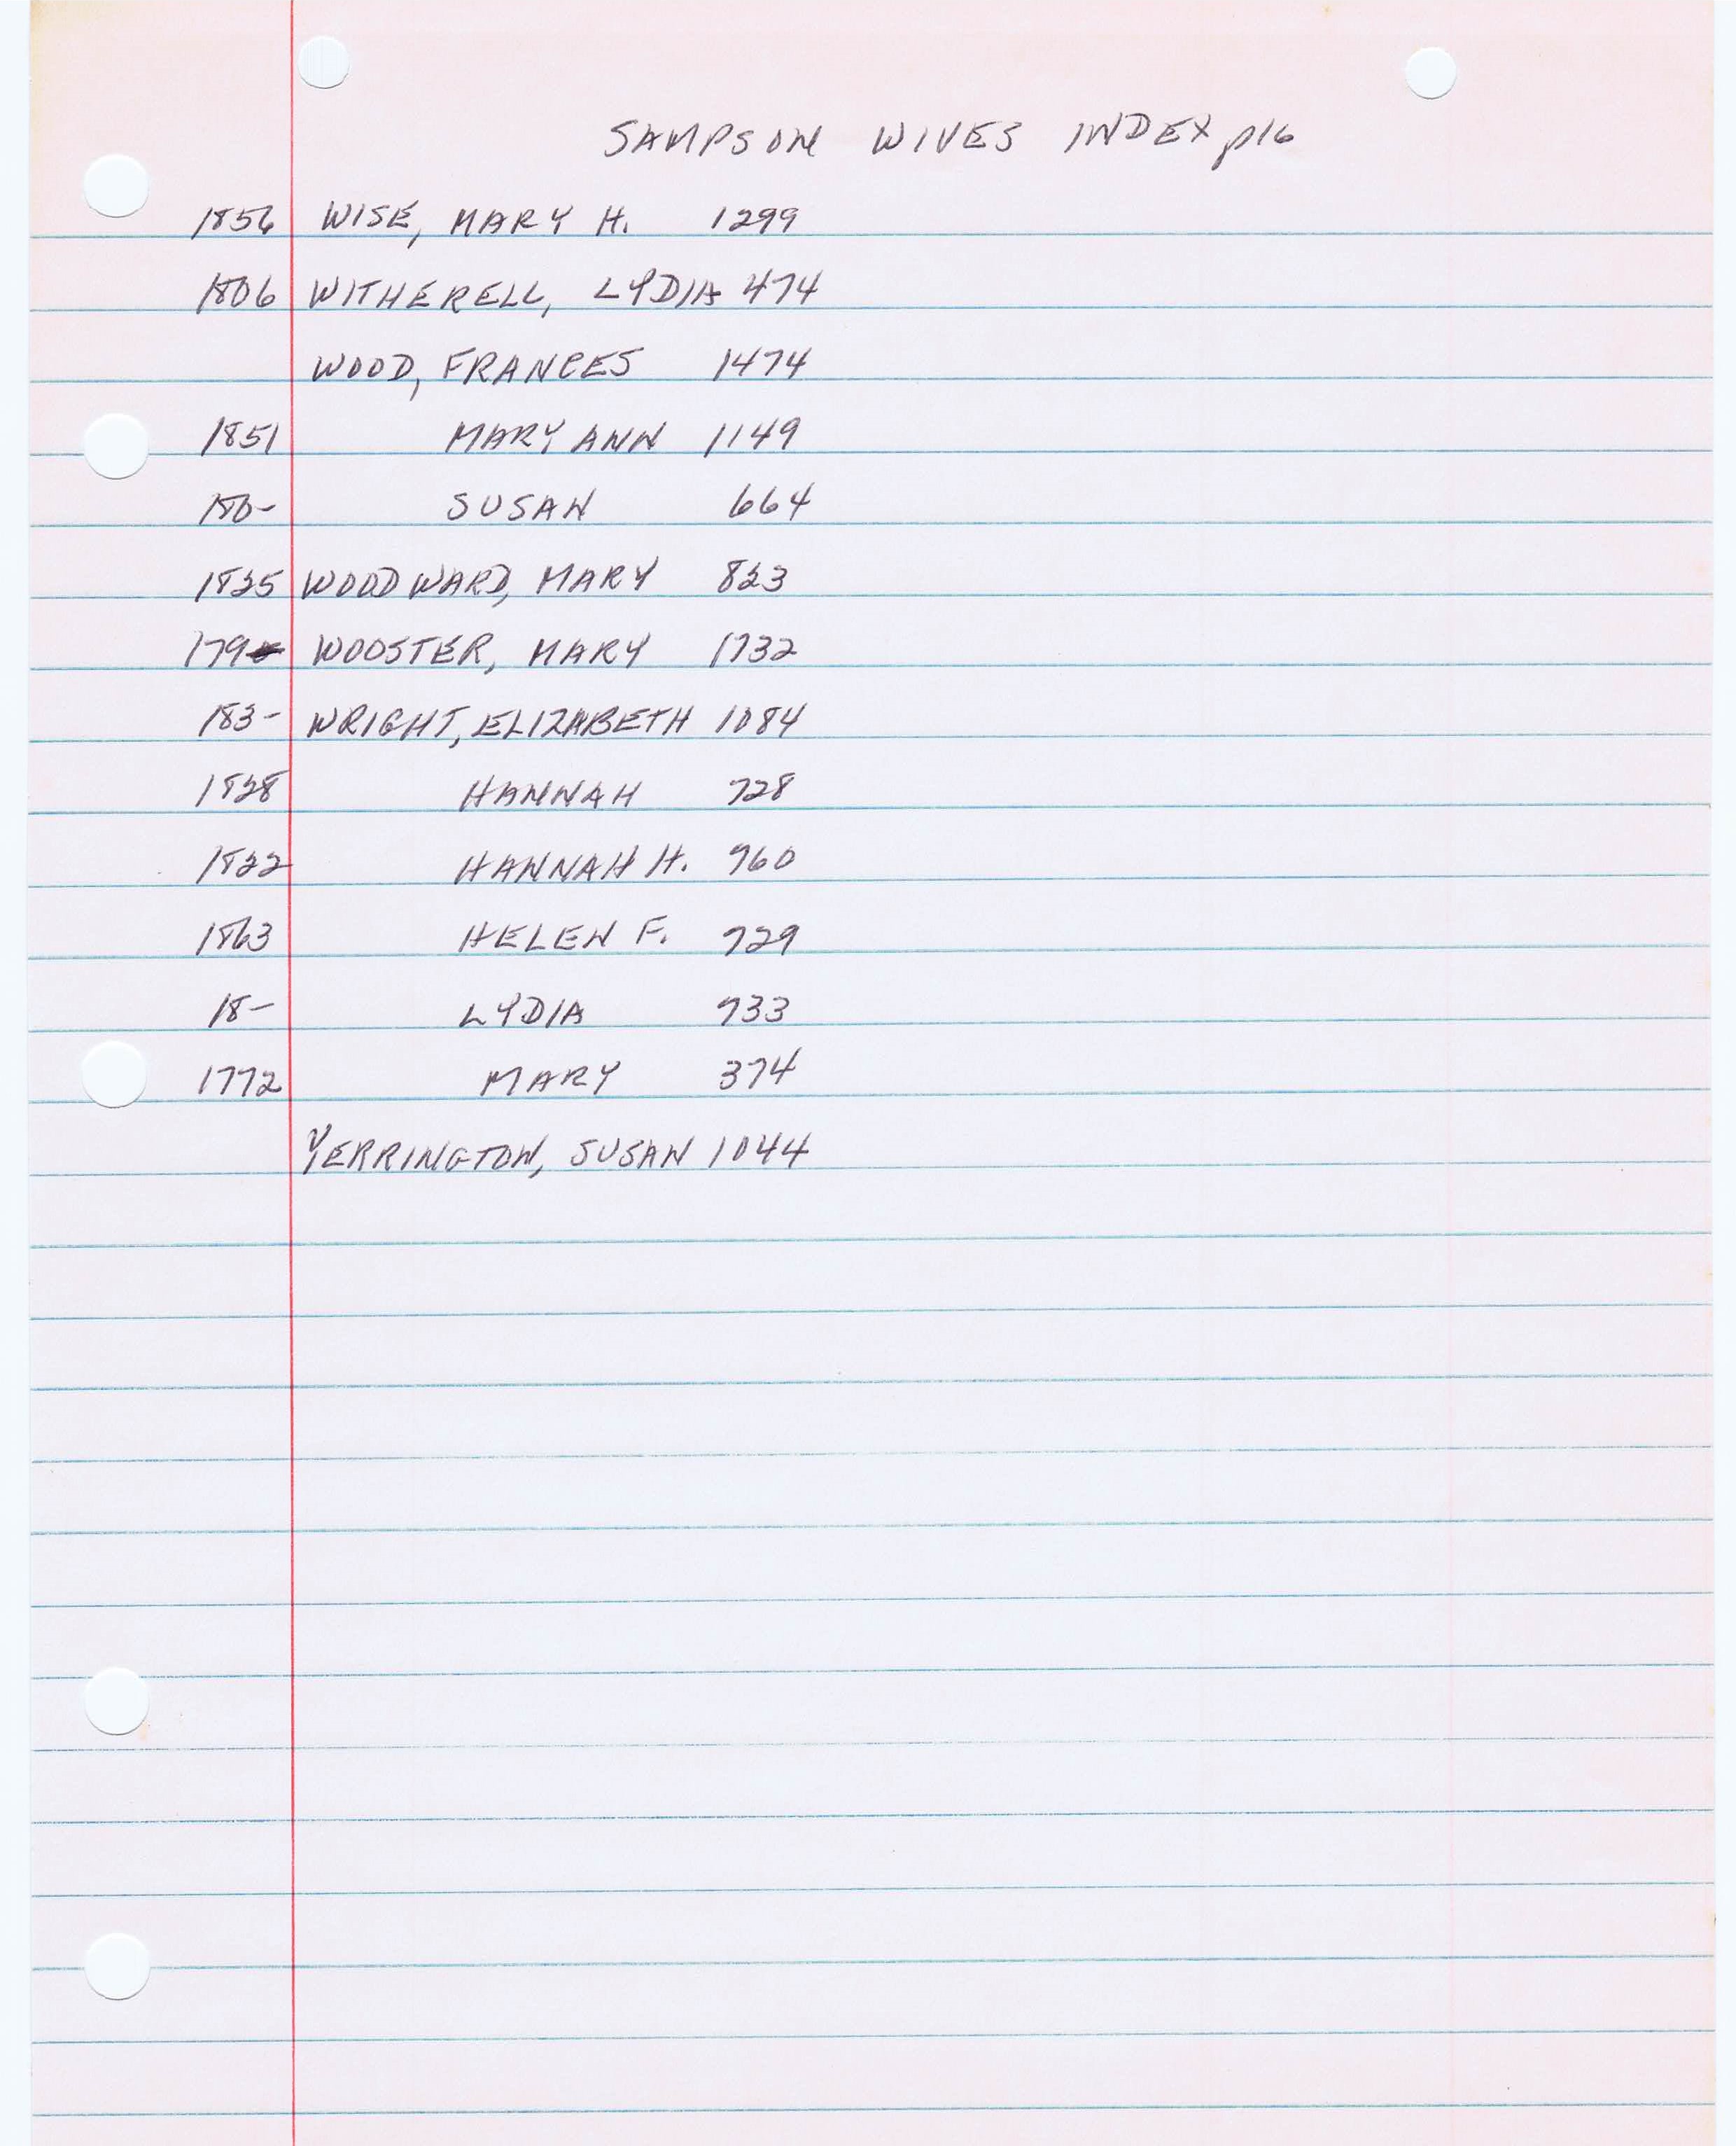 SAMPSON WIVES INDEX p16
1856 WISE, MARY H. 1299
1806 WITHERELL, LYDIA 474
WOOD, FRANCES 1474
1851 MARY ANN 1149
180- SUSAN 664
1825 WOODWARD, MARY 823
179- WOOSTER, MARY 1732
183- WRIGHT, ELIZABETH 1084
1828 HANNAH 728
1822 HANNAH H. 960
1863 HELEN F. 729
18- LYDIA 933
1772 MARY 374
YERRINGTON, SUSAN 1044